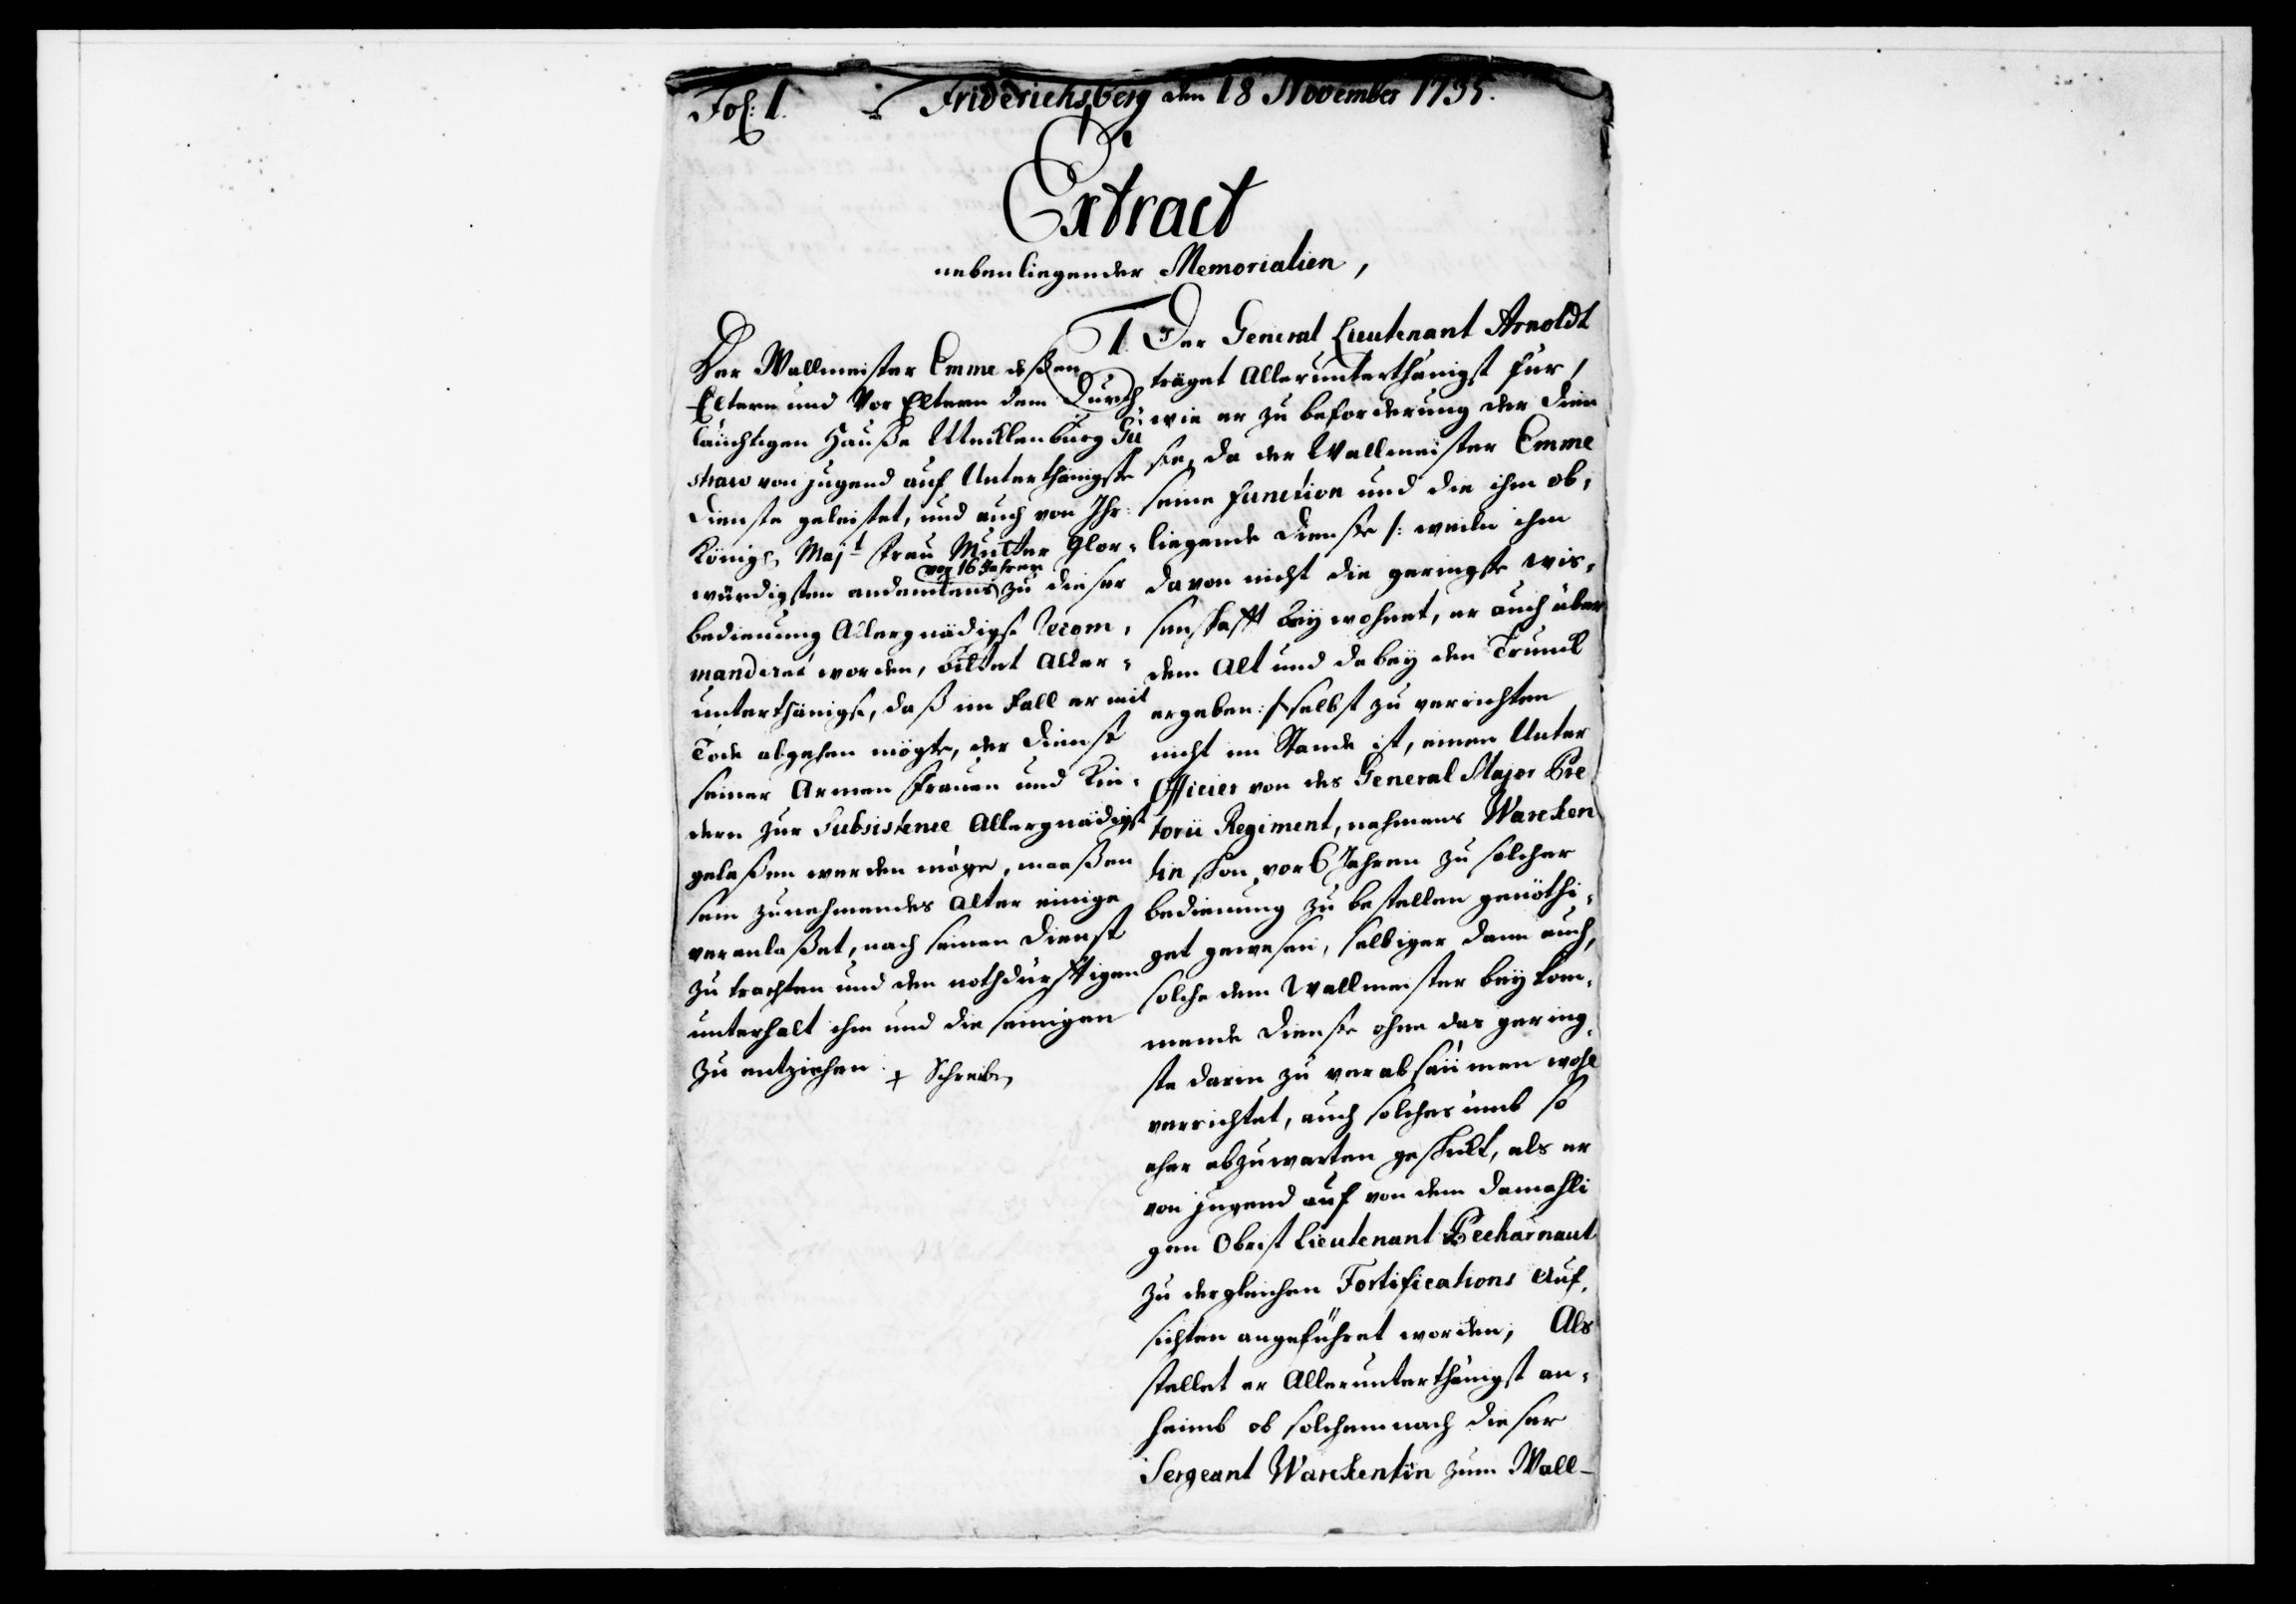 Fol: 1.
Friderichsberg den 18 November 1735.
Extract
nebenliegender Memorialien,
Der Wallmeister Emme deßen
Eltern und Vor Eltern dem Durch
läuchtigen Hauße Mecklenburg Gü
straw von jugend auf Unterthänigste
Dienste geleistet, und auch von Ihr:
Königl. Majt Frau Mutter Glor-
vor 16 Jahren
würdigsten andenckens zu dieser
bedienung Allergnädigst recom-
mandiret worden, bittet Aller-
unterthänigst, daß im Fall er mit
Tode abgehen mögte, der Dienst
seiner Armen Frauen und Kin-
dern zur Subsistence Allergnädigst
gelaßen werden möge, maaßen
sein zunehmendes Alter einige
veranlaßet, nach seinen Dienst
zu trachten und den nothdürfftigen
unterhalt ihm und die seinigen
zu entziehen.
+ Schreiben
1. Der General Lieutenant Arnoldt
träget Allerunterthänigst für,
wie er zu beforderung der Dien
ste, da der Wallmeister Emme
seine function und die ihm ob-
liegende Dienste /: weiln ihm
davon nicht die geringste wis-
senschafft beywohnet, er auch über
dem Alt und dabey den Trunck
ergeben :/ selbst zu verrichten
nicht im Stande ist, einen Unter
Officier von des General Major Pre
torii Regiment, nahmens Warcken
tin schon vor 6 Jahren zu solcher
bedienung zu bestellen genöthi-
get gewesen, selbiger dann auch,
solche dem Wallmeister beykom-
mende Dienste ohne das gering-
ste darin zu verabsäumen wohl
verrichtet, auch solches umb so
eher abzuwarten geschickt, als er
von jugend auf von dem damahli
gen Obrist Lieutenant
zu dergleichen Fortifications Auf-
sichten angeführet worden; Als
stellet er Allerunterthänigst an-
heimb ob solchemnach dieser
Sergeant Warckentin zum Wall-